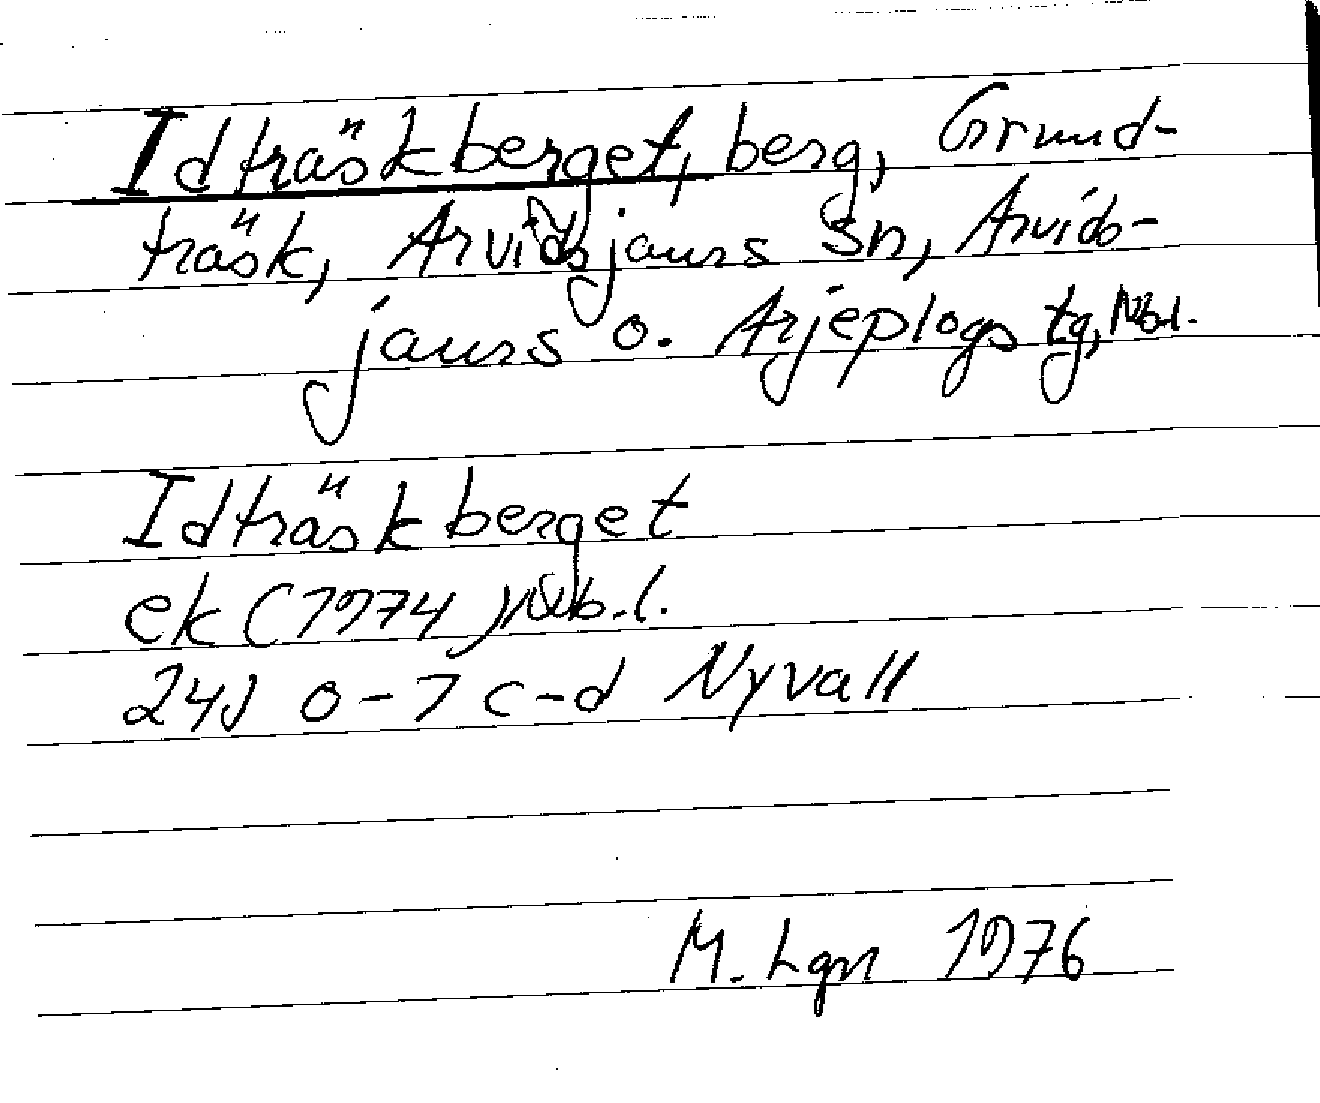 Idträskberget, berg, Grund-
träsk, Arvidsjaurs sn, Arvids-
jaurs o. Arjeplogs tg, Nb.l.
Idträskberget
ek (1974) Nb.l.
24J 0-7 c-d Nyvall
M. Lgn 1976